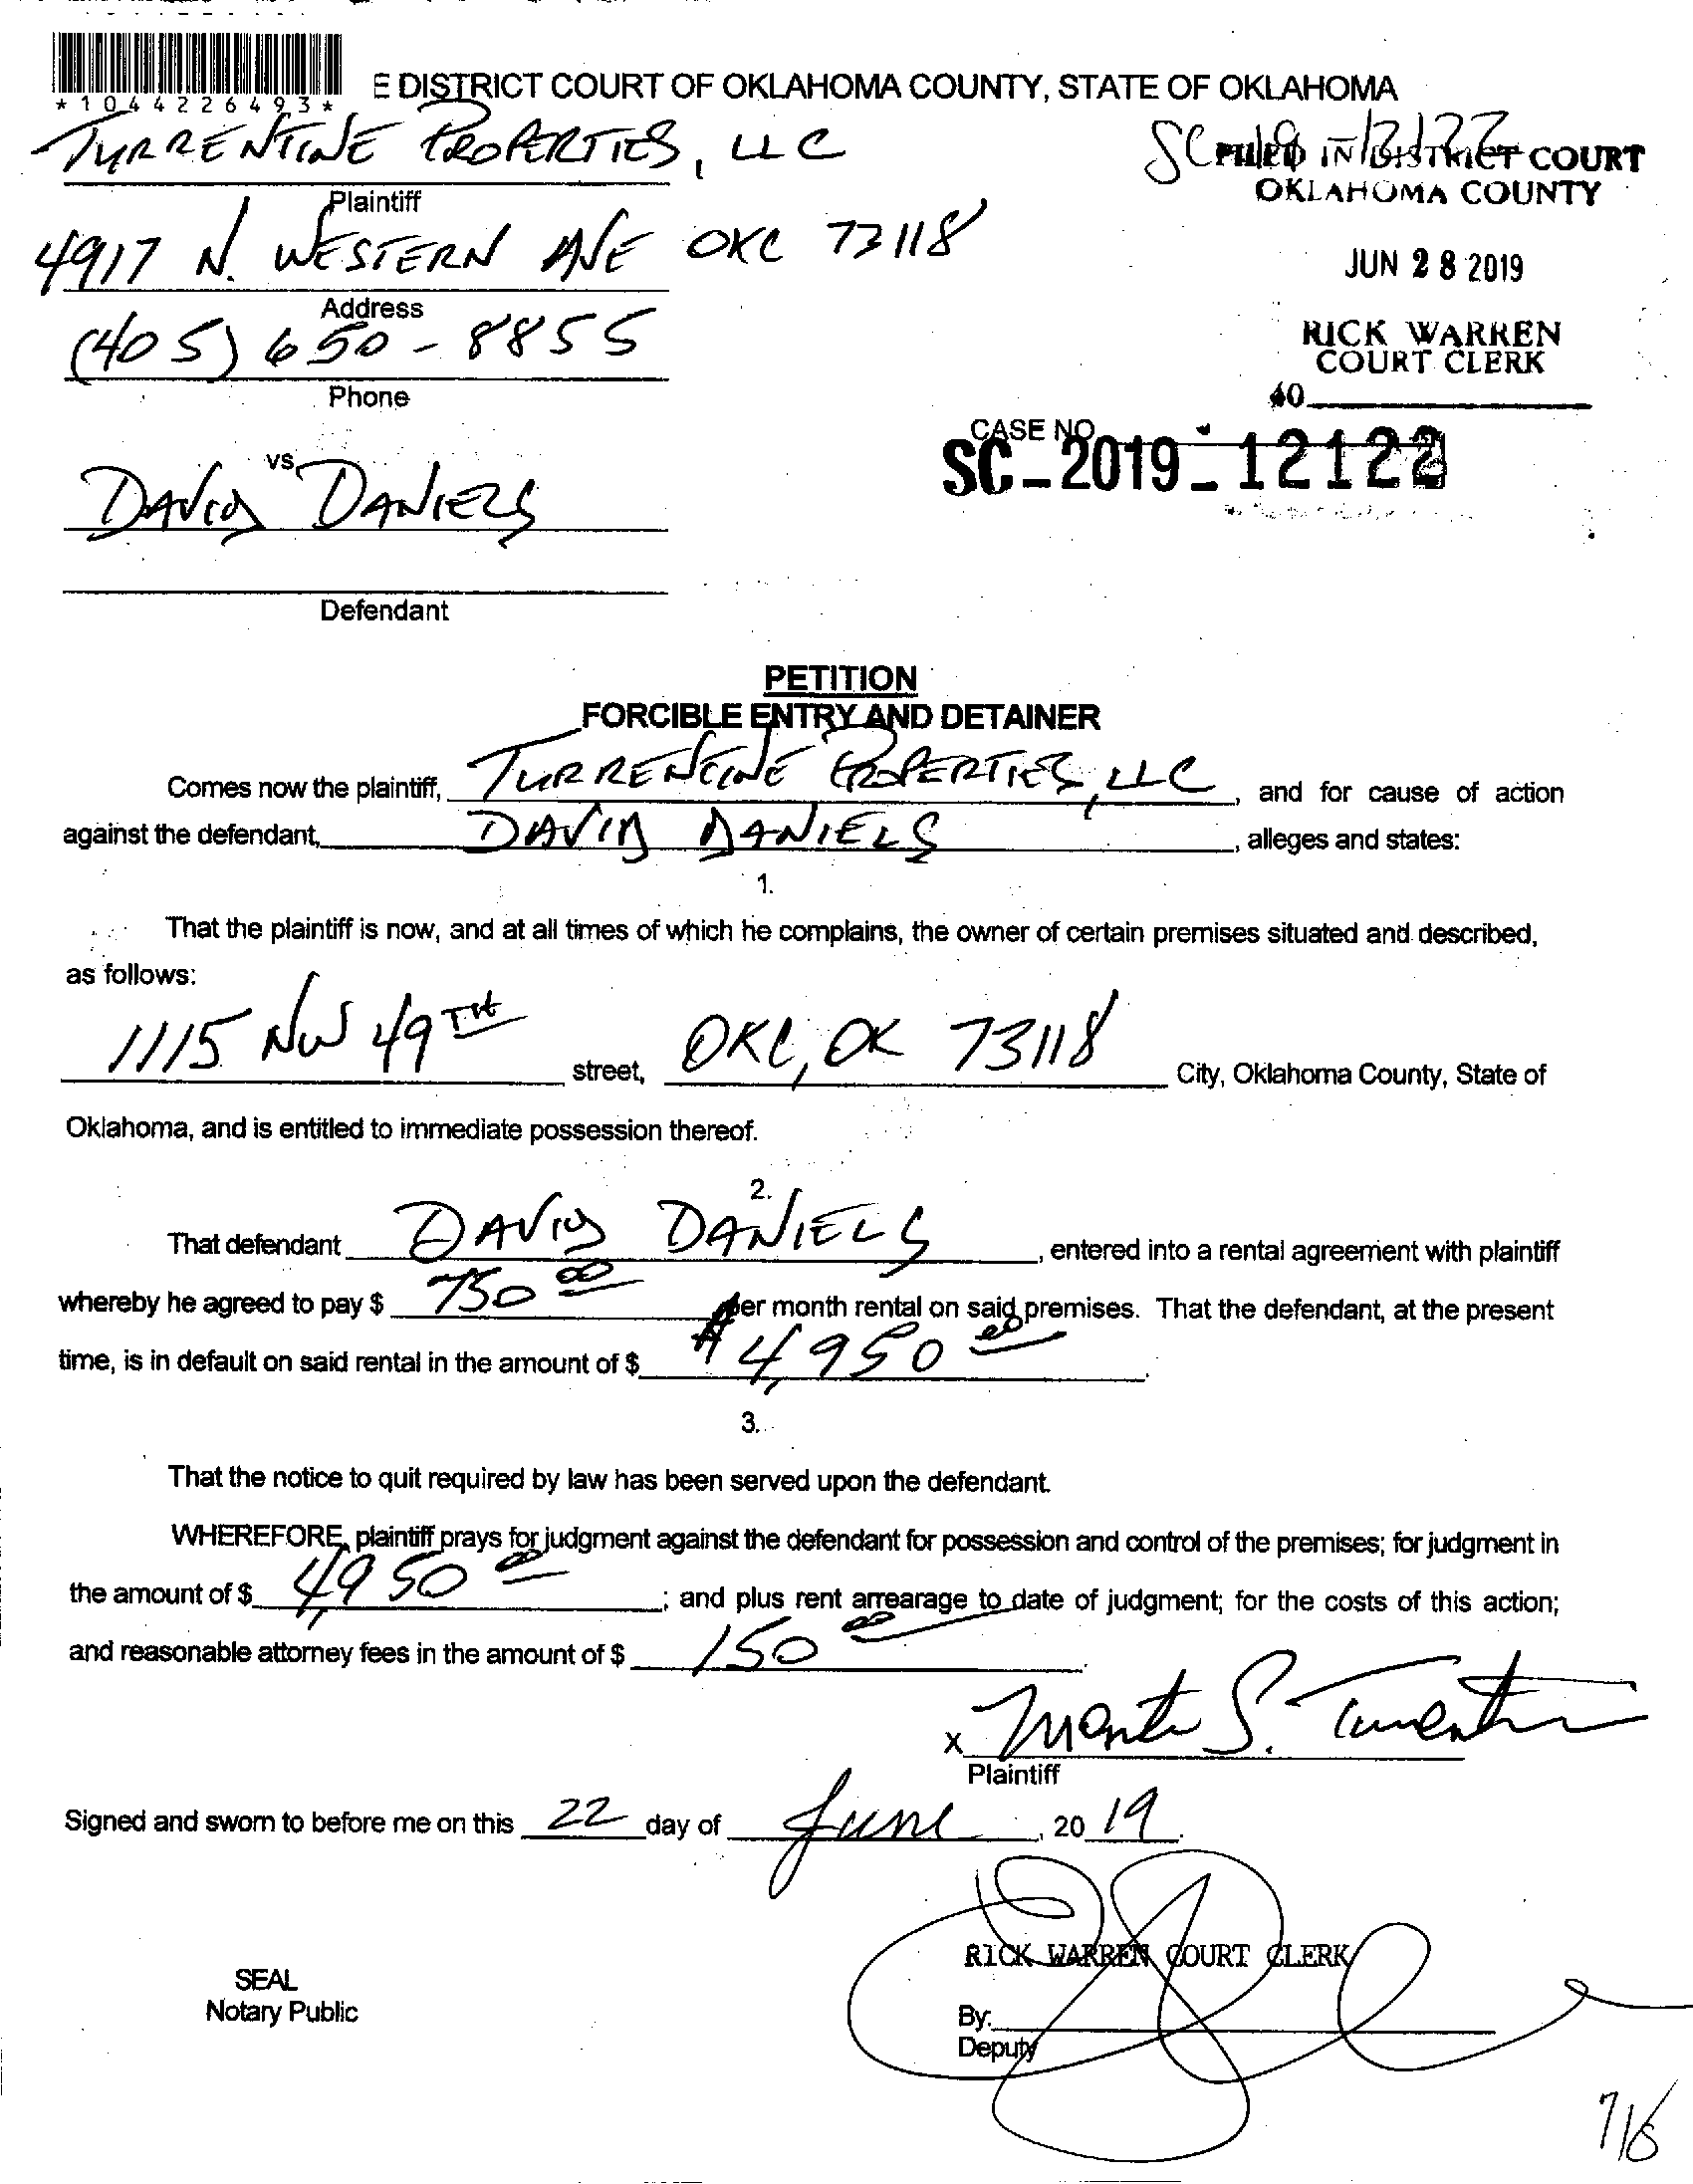 *1044226493*
E DISTRICT COURT OF OKLAHOMA COUNTY, STATE OF OKLAHOMA
TURRENTINE PROPERTIES, LLC
Plaintiff
FILED IN DISTRICT COURT
OKLAHOMA COUNTY
4917 N. WESTERN AVE OKC 73118
Address
JUN 28 2019
(405) 650-8855
Phone
RICK WARREN
COURT CLERK
40
CASE NO.
SC-2019-12122
vs.
DAVID DANIELS
Defendant
PETITION
FORCIBLE ENTRY AND DETAINER
Comes now the plaintiff, TURRENTINE PROPERTIES, LLC, and for cause of action
against the defendant, DAVID DANIELS, alleges and states:
1.
That the plaintiff is now, and at all times of which he complains, the owner of certain premises situated and described,
as follows:
1115 NW 49TH street, OKC, OK 73118 City, Oklahoma County, State of
Oklahoma, and is entitled to immediate possession thereof.
2.
That defendant DAVID DANIELS, entered into a rental agreement with plaintiff
whereby he agreed to pay $ 750 00 per month rental on said premises. That the defendant, at the present
time, is in default on said rental in the amount of $ $4,950 00.
3.
That the notice to quit required by law has been served upon the defendant.
WHEREFORE, plaintiff prays for judgment against the defendant for possession and control of the premises; for judgment in
the amount of $ 4,950 00; and plus rent arrearage to date of judgment; for the costs of this action;
and reasonable attorney fees in the amount of $ 150 00.
x Monte S. Turrentine
Plaintiff
Signed and sworn to before me on this 22 day of June, 20 19.
RICK WARREN COURT CLERK
SEAL
Notary Public
By:
Deputy